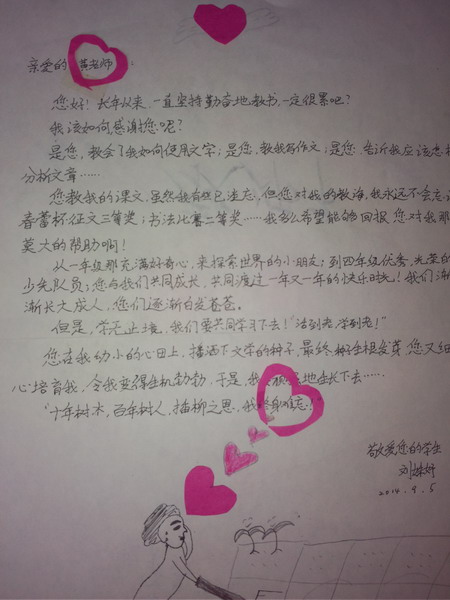 亲爱的 黄老师：
您好！长年以来，一直坚持勤奋地教书，一定很累吧？
我该如何感谢您呢？
是您，教会了我如何使用文字；是您，教我写作文；是您，告诉我应该怎样
分析文章……
您教我的课文，虽然我有些已淡忘，但您对我的教诲，我永远不会忘
春蕾杯征文三等奖；书法比赛二等奖……我多么希望能够回报您对我那
莫大的帮助啊！
从一年级那充满好奇心，来探索世界的小朋友；到四年级优秀，光荣的
少先队员；您与我们共同成长，共同渡过一年又一年的快乐时光！我们渐
渐长大成人，您们逐渐白发苍苍。
但是，学无止境，我们要共同学习下去！“活到老，学到老！”
您在我幼小的心田上，播洒下文学的种子，最终，种子生根发芽，您又细
心培育我，令我变得生机勃勃，于是，我 地生长下去……
“十年树木，百年树人，插柳之恩，我终身难忘！”
敬爱您的学生
刘 妍
2014.9.5